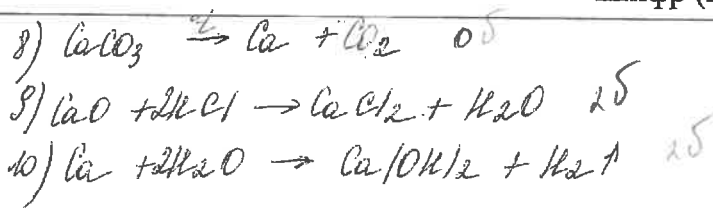 8) CaCO3 t→ Ca + CO2 0 б
9) CaO + 2HCl → CaCl2 + H2O 2б
10) Ca + 2H2O → Ca(OH)2 + H2↑ 2б